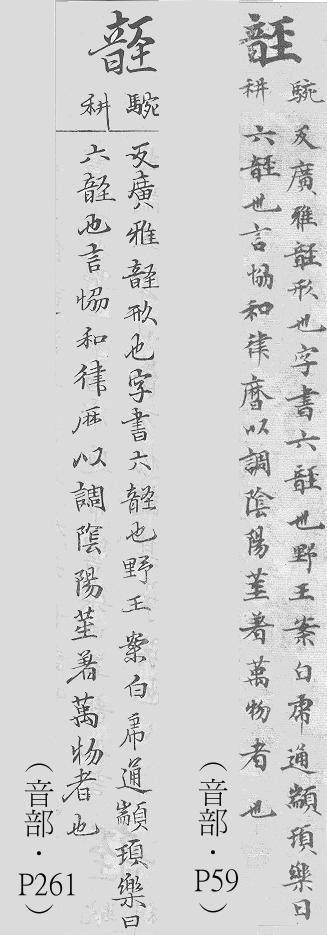 䪫
䮘反廣雅䪫形也字書六䪫也野王案白虎通顓頊樂曰
耕六䪫也言恊和律曆以調陰陽莖著萬物者也
（音部．P59）
䪫
䮘反廣雅䪫形也字書六䪫也野王案白虎通顓頊樂曰
耕六䪫也言恊和律歷以調陰陽莖著萬物者也
（音部．P261）